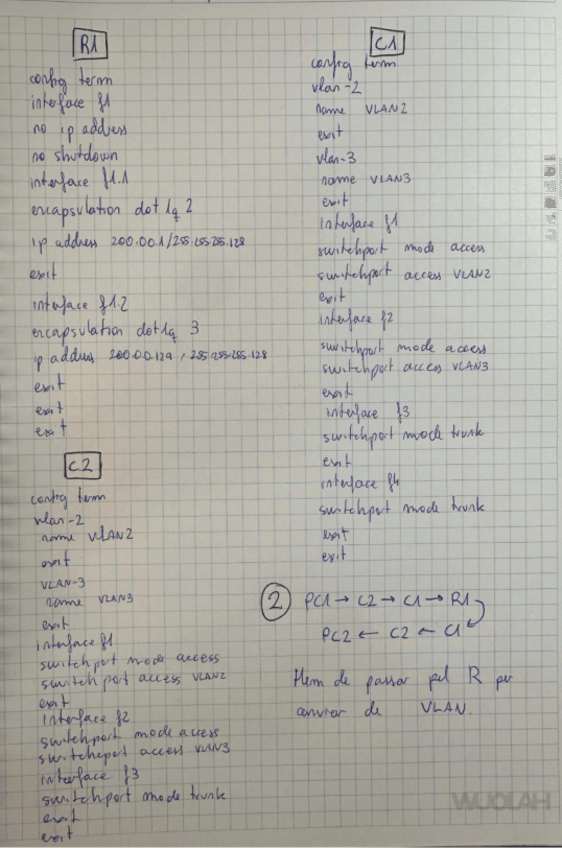 R1
config term
interface f1
no ip address
no shutdown
interface f1.1
encapsulation dot1q 2
ip address 200.0.0.1/255.255.255.128
exit
interface f1.2
encapsulation dot1q 3
ip address 200.0.0.129 / 255.255.255.128
exit
exit
exit
C2
config term
vlan-2
name VLAN2
exit
VLAN-3
name VLAN3
exit
interface f1
switchport mode access
switchport access VLAN2
exit
interface f2
switchport mode access
switchport access VLAN3
interface f3
switchport mode trunk
exit
exit
C1
config term
vlan-2
name VLAN2
exit
vlan-3
name VLAN3
exit
interface f1
switchport mode access
switchport access VLAN2
exit
interface f2
switchport mode access
switchport access VLAN3
exit
interface f3
switchport mode trunk
exit
interface f4
switchport mode trunk
exit
exit
2 PC1 → C2 → C1 → R1
PC2 ← C2 ← C1
Hem de passar pel R per
canviar de VLAN.
WUOLAH